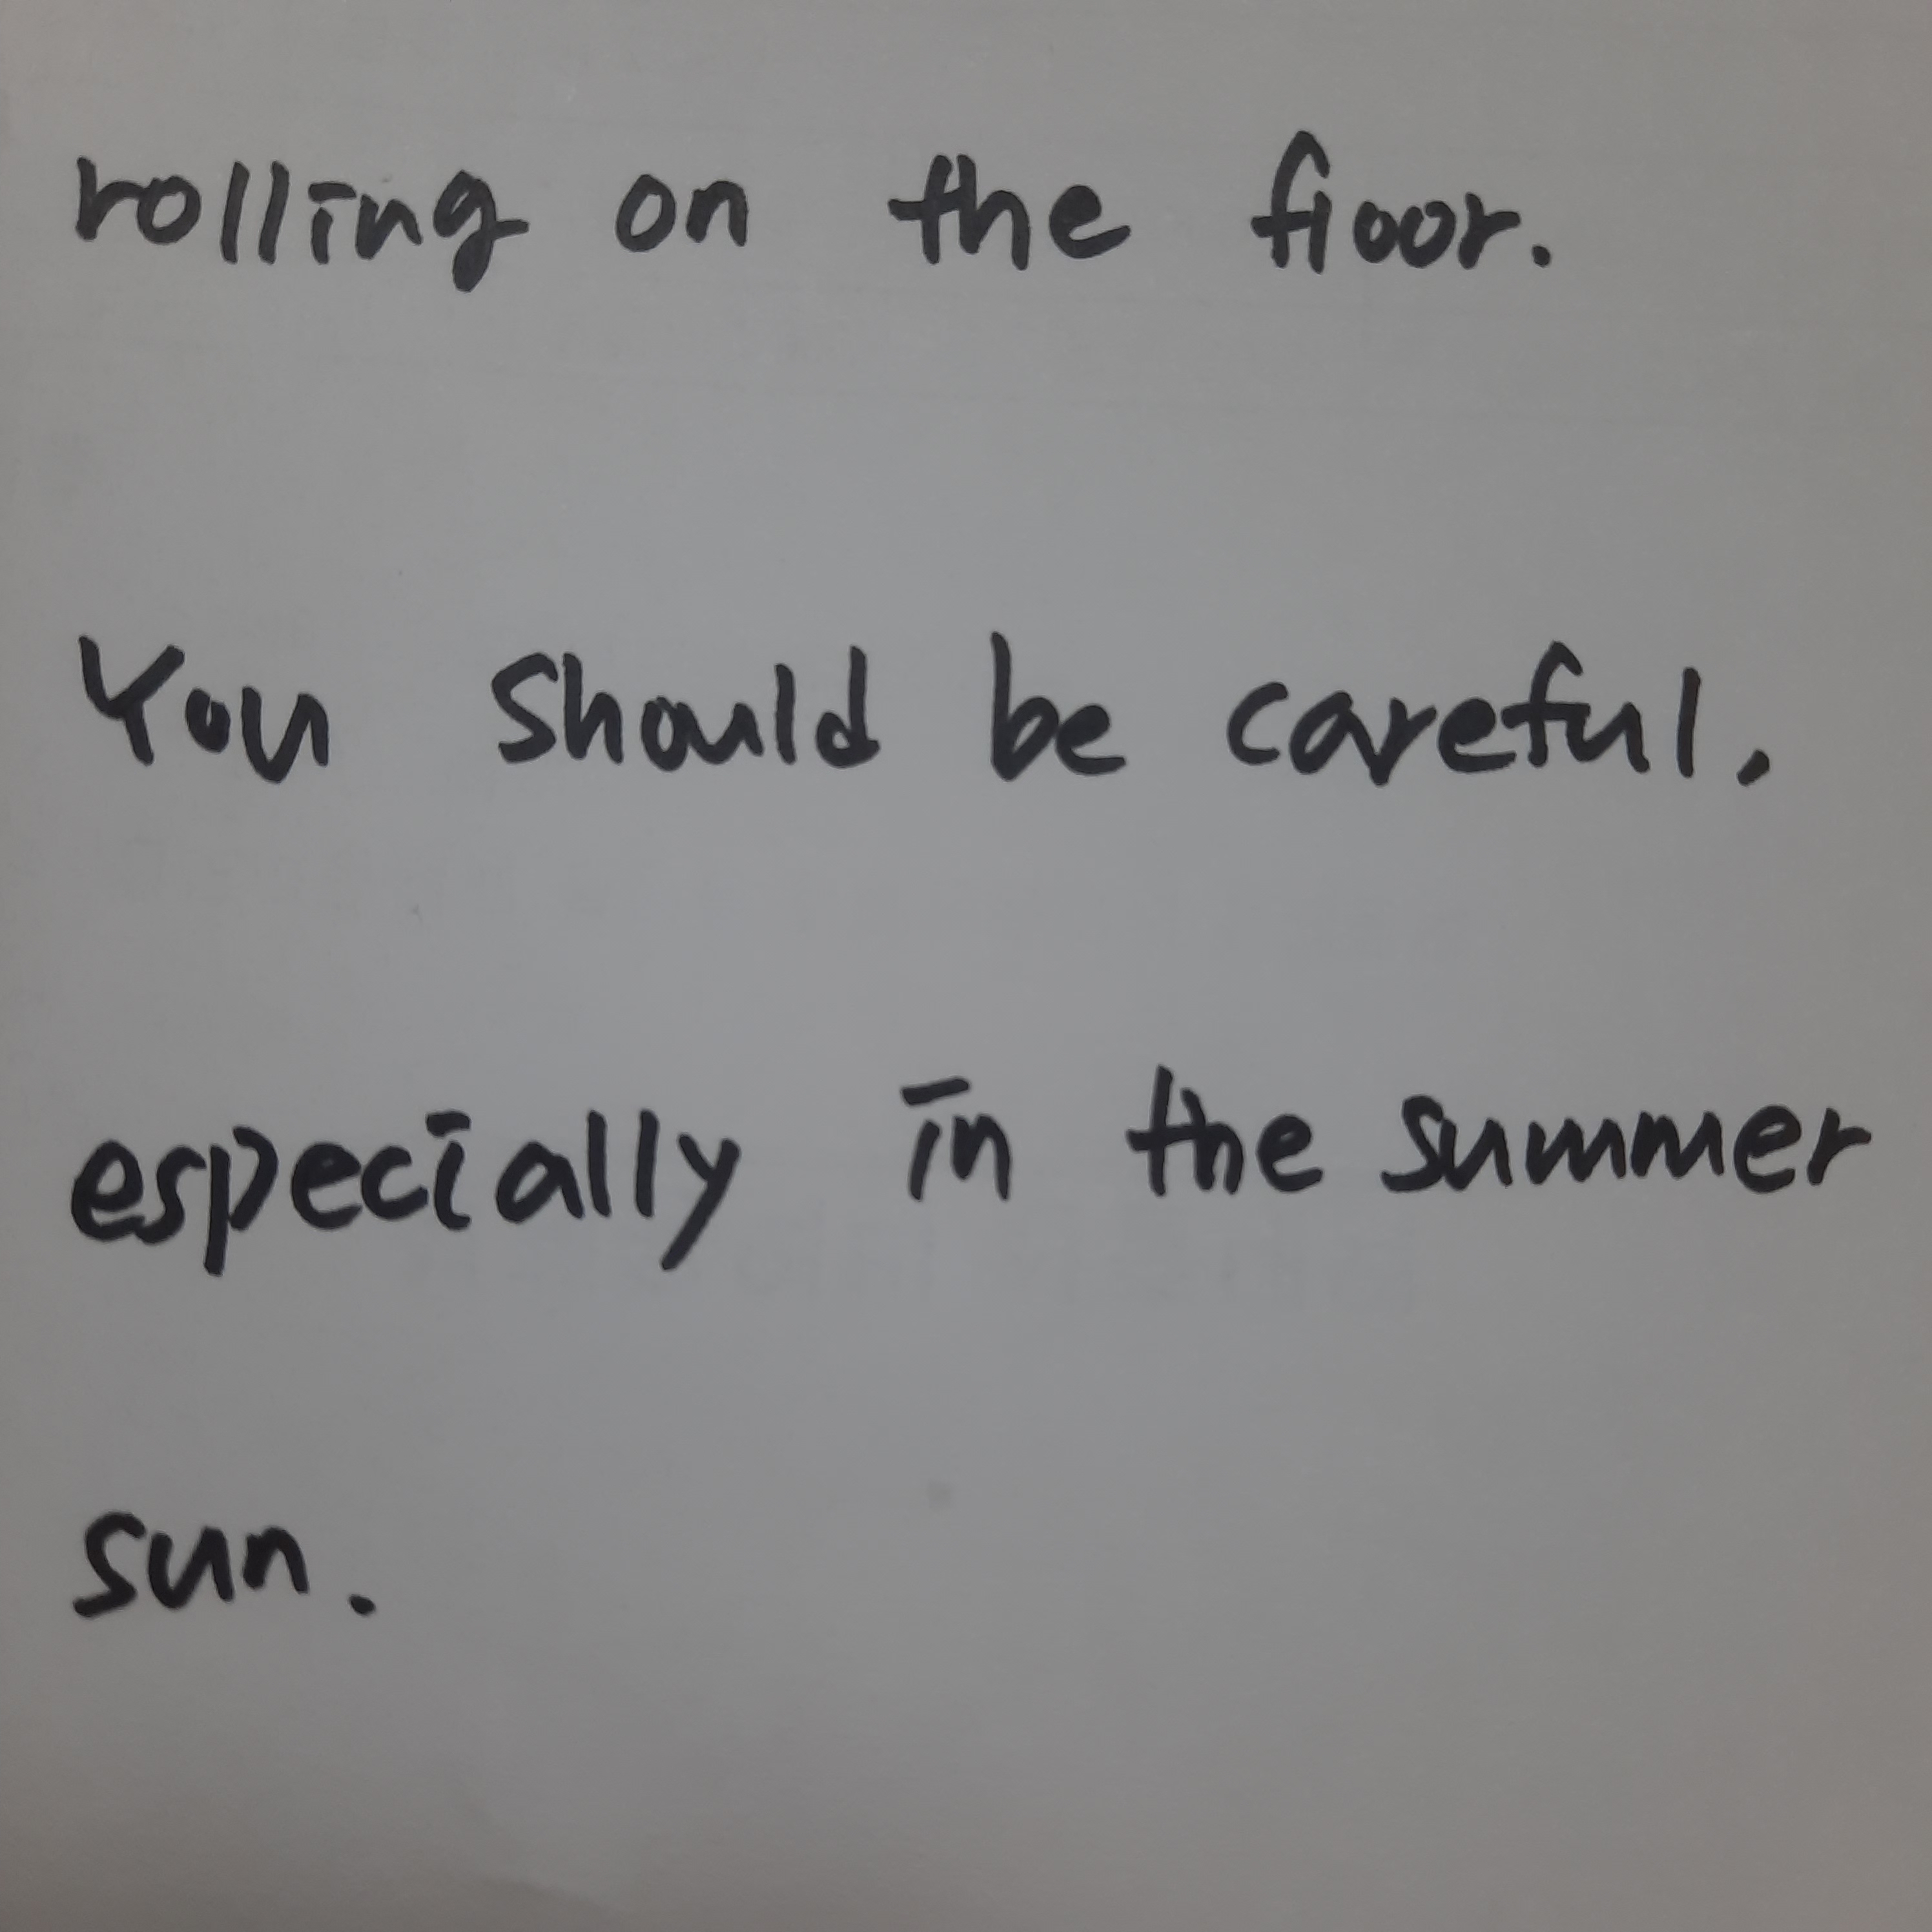 rolling on the floor.
You should be careful,
especially in the summer
sun.